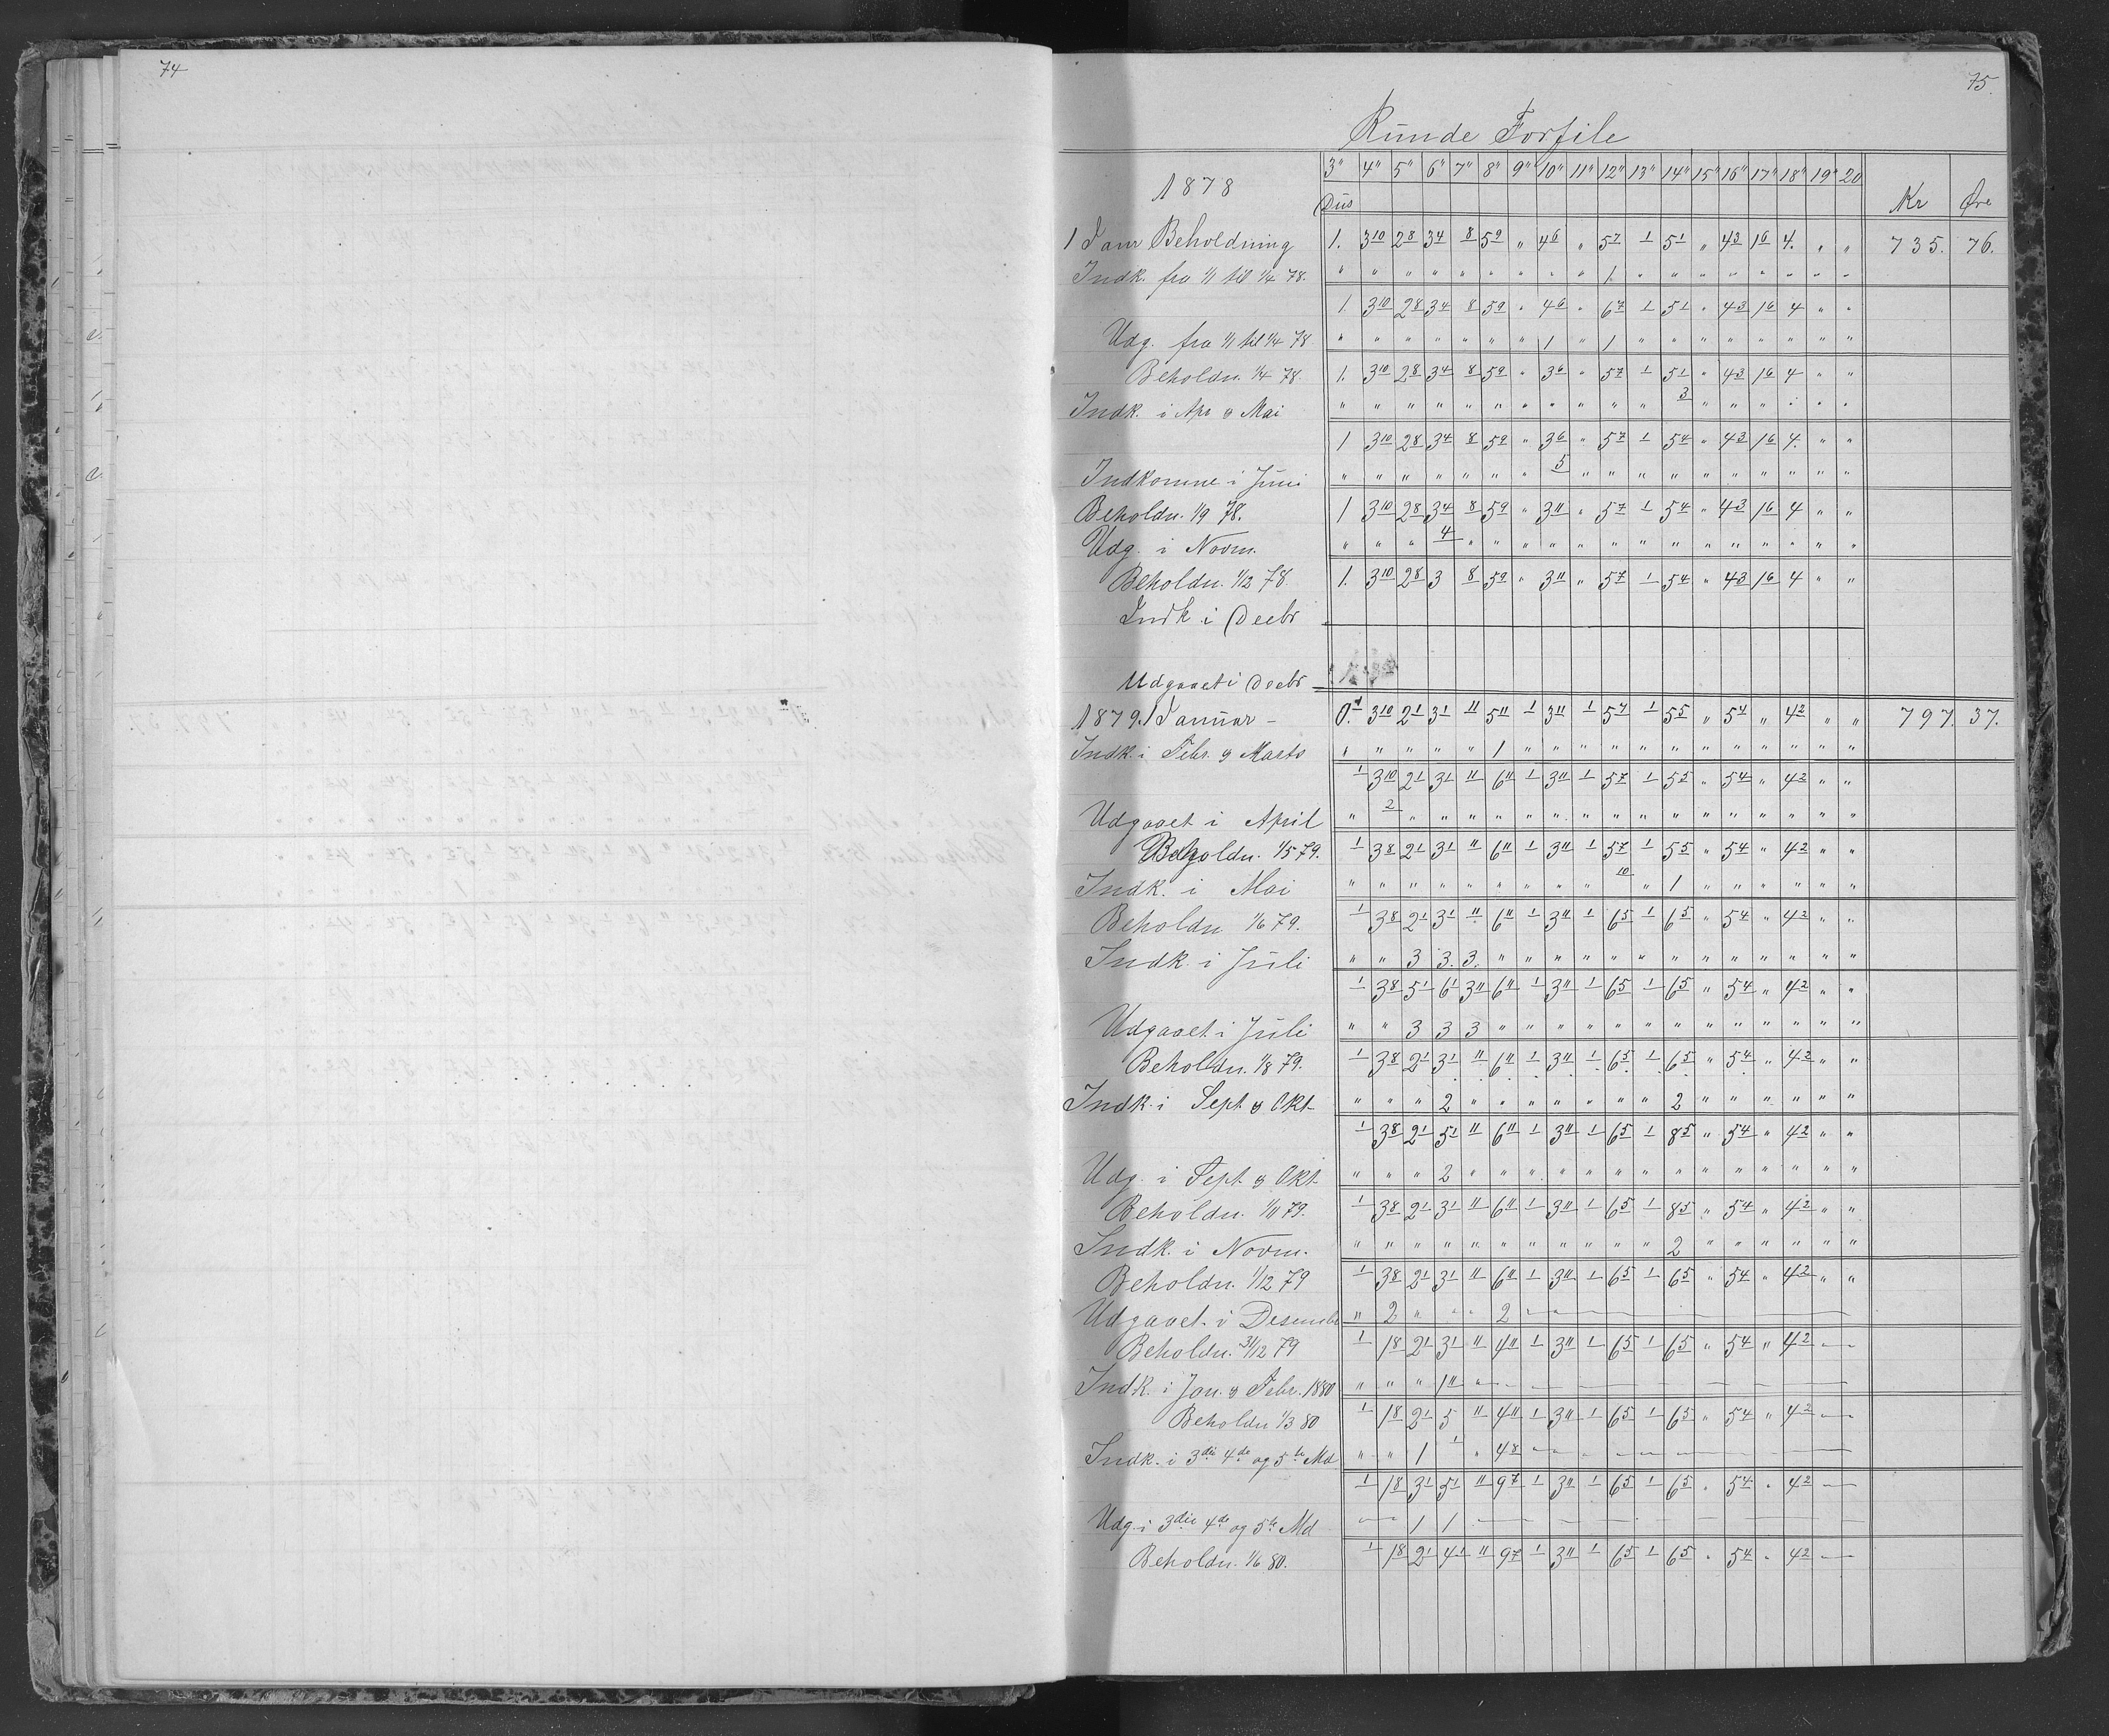 74
75.
Runde Forfile
1878 3" 4" 5" 6" 7" 8" 9" 10" 11" 12" 13" 14" 15" 16" 17" 18" 19" 20 Kr Øre
Dus
1 Janr Beholdning 1. 3 10 2 8 3 4 8 5 9 " 4 6 " 5 7 1 5 1 " 4 3 1 6 4. " " 735. 76.
Indk. fra 1/1 til 1/4 78. " " " " " " " " " 1. " " " " " " " "
1. 3 10 2 8 3 4 8 5 9 " 4 6 " 6 7 1 5 1 " 4 3 1 6 4 " "
Udg. fra 1/1 til 1/4 78 " " " " " " " 1 " 1 " " " " " " " "
Beholdn. 1/4 78. 1. 3 10 2 8 3 4 8 5 9 " 3 6 " 5 7 1 5 1 " 4 3 1 6 4 " "
Indk. i Apr & Mai " " " " " " " " " " " 3 " " " " " "
1 3 10 2 8 3 4 8 5 9 " 3 6 " 5 7 1 5 4 " 4 3 1 6 4. " "
Indkomne i Juni " " " " " " " 5 " " " " " " " " " "
Beholdn. 1/9 78. 1 3 10 2 8 3 4 8 5 9 " 3 11 " 5 7 1 5 4 " 4 3 1 6 4 " "
Udg. i Novm. " " " 4 " " " " " " " " " " " " " "
Beholdn. 1/12 78. 1. 3 10 2 8 3 8 5 9 " 3 11 " 5 7 1 5 4 " 4 3 1 6 4 " "
Indk i Decbr
Udgaaet i Decbr
1879. 1 Januar - 0. 1 3 10 2 1 3 1 11 5 11 1 3 11 1 5 7 1 5 5 " 5 4 " 4 2 " " 797. 37.
Indk. i Febr. & Marts " " " " " 1 " " " " " " " " " " " "
1 3 10 2 1 3 1 11 6 11 1 3 11 1 5 7 1 5 5 " 5 4 " 4 2 " "
Udgaaet i April " 2 " " " " " " " " " " " " " " " "
Beholdn. 1/5 79. 1 3 8 2 1 3 1 11 6 11 1 3 11 1 5 7 1 5 5 " 5 4 " 4 2 " "
Indk. i Mai " " " " " " " " " 10 " 1 " " " " " "
Beholdn 1/6 79. 1 3 8 2 1 3 1 11 6 11 1 3 11 1 6 5 1 6 5 " 5 4 " 4 2 " "
Indk. i Juli " " 3 3. 3. " " " " " " " " " " " " "
1 3 8 5 1 6 1 3 11 6 11 1 3 11 1 6 5 1 6 5 " 5 4 " 4 2 " "
Udgaaet i Juli " " 3 3 3 " " " " " " " " " " " " "
Beholdn. 1/8 79. 1 3 8 2 1 3 1 11 6 11 1 3 11 1 6 5 1 6 5 " 5 4 " 4 2 " "
Indk. i Sept & Okt " " " 2 " " " " " " " 2 " " " " " "
1 3 8 2 1 5 1 11 6 11 1 3 11 1 6 5 1 8 5 " 5 4 " 4 2 " "
Udg. i Sept & Okt " " " 2 " " " " " " " " " " " " " "
Beholdn. 1/11 79. 1 3 8 2 1 3 1 11 6 11 1 3 11 1 6 5 1 8 5 " 5 4 " 4 2 " "
Indk. i Novm. " " " " " " " " " " " 2 " " " " " "
Beholdn. 1/12 79 1 3 8 2 1 3 1 11 6 11 1 3 11 1 6 5 1 6 5 " 5 4 " 4 2 " "
Udgaaet. i Desembr " 2 " " " 2 " "
Beholdn. 31/12 79 1 1 8 2 1 3 1 11 4 11 1 3 11 1 6 5 1 6 5 " 5 4 " 4 2
Indk. i Jan. & Febr. 1880 " " " 1 11 "
Beholdn 1/3 80 1 1 8 2 1 5 11 4 11 1 3 11 1 6 5 1 6 5 " 5 4 " 4 2
Indk. i 3die 4de og 5te Md " " 1 1 " 4 8
1 1 8 3 1 5 1 11 9 7 1 3 11 1 6 5 1 6 5 " 5 4 " 4 2
Udg. i 3die 4de og 5te Md 1 1
Beholdn. 1/6 80. 1 1 8 2 1 4 1 11 9 7 1 3 11 1 6 5 1 6 5 " 5 4 " 4 2